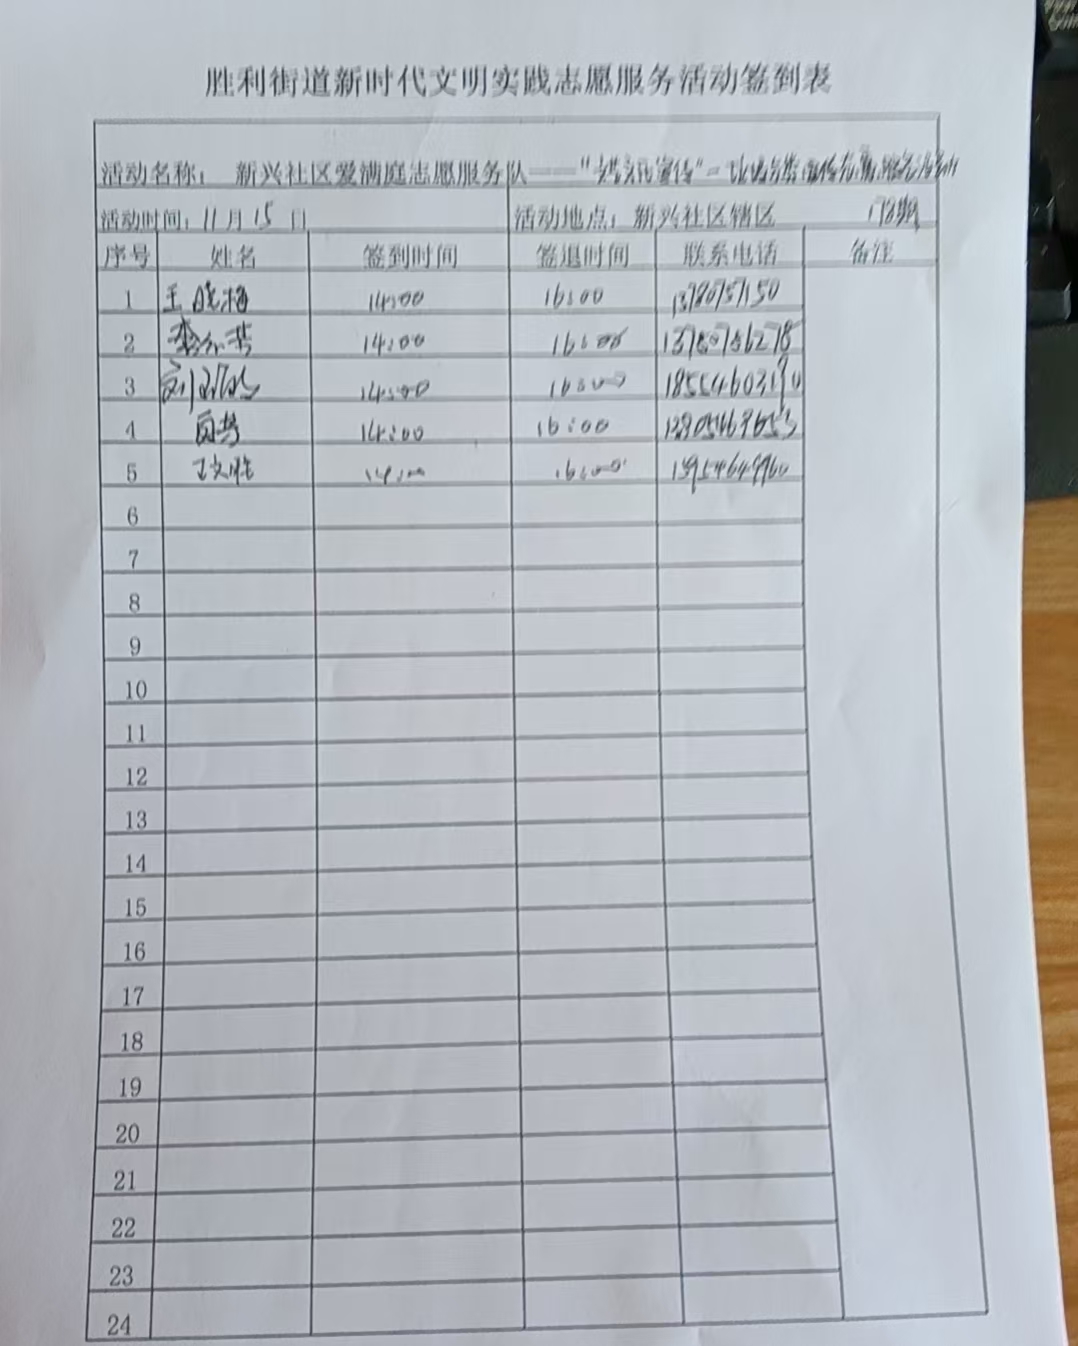 胜利街道新时代文明实践志愿服务活动签到表
活动名称：新兴社区爱满庭志愿服务队——"宣传"
活动时间：11月15日 活动地点：新兴社区辖区
序号 姓名 签到时间 签退时间 联系电话 备注
1 王晓梅 14:00 16:00 13780757150
2 14:00 16:00 13780786278
3 14:00 16:00
4 14:00 16:00
5 14:00 16:00 15954649960
6
7
8
9
10
11
12
13
14
15
16
17
18
19
20
21
22
23
24